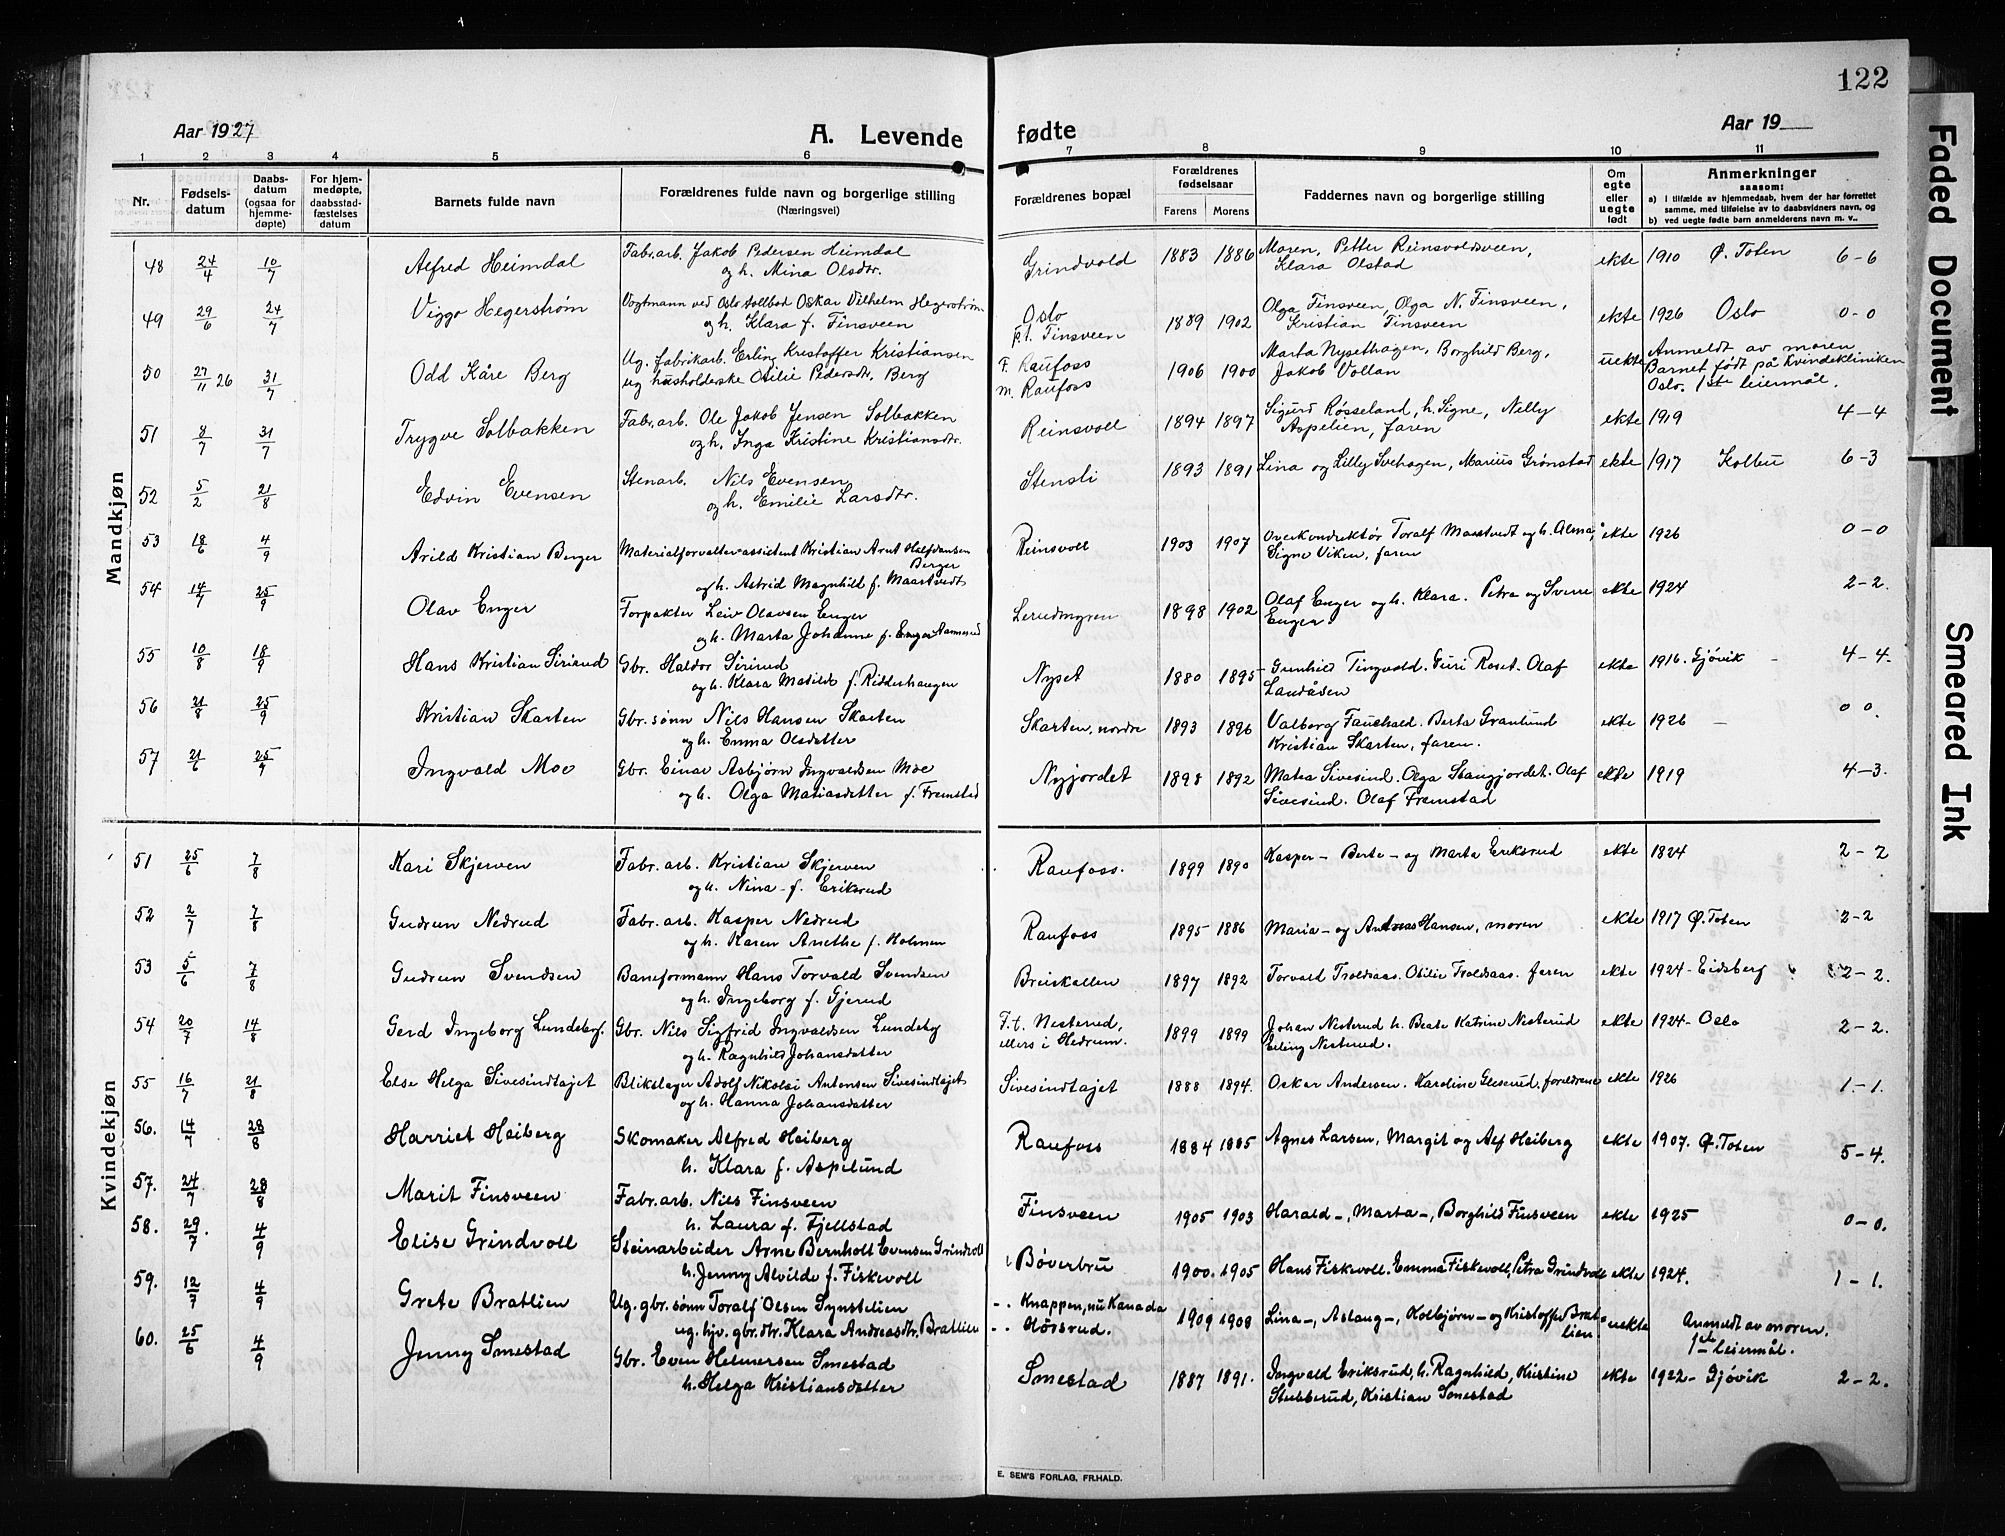 122
Aar 1927
A. Levende fødte
Aar 19
1 2 3 4 5 6 7 8 9 10 11
Nr.
Fødsels-datum
Daabs-datum (ogsaa for hjemme-døpte)
For hjem-medøpte, daabsstad-fæstelses datum
Barnets fulde navn
Forældrenes fulde navn og borgerlige stilling (Næringsvei)
Forældrenes bopæl
Forældrenes fødselsaar
Farens Morens
Faddernes navn og borgerlige stilling
Om egte eller uegte født
Anmerkninger
saasom:
a) i tilfælde av hjemmedaab, hvem der har forrettet samme, med tilføielse av to daabsvidners navn, og
b) ved uegte fødte barn anmelderens navn m. v..
Mandkjøn
48 24/4 10/7 Alfred Heimdal Fabr.arb. Jakob Pedersen Heimdal Grindvold 1883 1886 Maren, Petter Reinsvoldsveen, ekte 1910 Ø. Toten 6-6
og h. Mina Olsdtr. Klara Olstad
49 29/6 24/7 Viggo Hegerstrøm Vogtmann ved Oslo tollbod Oskar Vilhelm Hegerstrøm Oslo 1889 1902 Olga Finsveen, Olga N. Finsveen, ekte 1926 Oslo 0-0
og h. Klara f. Finsveen p.t. Finsveen Kristian Finsveen
50 27/11 26 31/7 Odd Kåre Berg Ug. fabrikarb. Erling Kristoffer Kristiansen F. Raufoss 1906 1900 Marta Nysethagen, Borghild Berg, uekte Anmeldt av moren
ug husholderske Otilie Pedersdtr. Berg m. Raufoss Jakob Vollan Barnet født på Kvindekliniken
Oslo. 1ste leiermål.
51 8/7 31/7 Trygve Solbakken Fabr.arb. Ole Jakob Jensen Solbakken Reinsvoll 1894 1897 Sigurd Røsseland, h. Signe, Nelly ekte 1919 4-4
og h. Inga Kristine Kristiansdtr. Aspelien, faren
52 5/2 21/8 Edvin Evensen Stenarb. Nils Evensen Stensli 1893 1891 Lina og Lilly Svehagen, Marius Grønstad ekte 1917 Kolbu 6-3
og h. Emilie Larsdtr.
53 18/6 4/9 Arild Kristian Berger Materialforvalter-assistent Kristian Arnt Halfdansen Berger Reinsvoll 1903 1907 Overkonduktør Toralf Maastvedt og h. Alma, ekte 1926 0-0
og h. Astrid Magnhild f. Maastvedt Signe Viken, faren
54 14/7 25/9 Olav Enger Forpakter Leiv Olavsen Enger Lerudmyren 1898 1902 Olaf Enger og h. Klara. Petra og Sverre ekte 1924 2-2.
og h. Marta Johanne f. Enger Enger
55 10/8 18/9 Hans Kristian Sirirud Gbr. Haldor Sirirud Nyset 1880 1895 Gunhild Tingvold. Guri Roset. Olaf ekte 1916. Gjøvik 4-4.
og h. Klara Matilde f. Ridderhaugen Landåsen
56 21/8 25/9 Kristian Skarten Gbr. sønn Nils Hansen Skarten Skarten, nordre 1893 1896 Valborg Fauchald. Berta Granlund ekte 1926 - 0 0.
og h. Emma Olsdatter Kristian Skarten, faren.
57 21/6 25/9 Ingvald Moe Gbr. Einar Asbjørn Ingvaldsen Moe Nyjordet 1898 1892 Matea Sivesind. Olga Stangjordet. Olaf ekte 1919 4-3.
og h. Olga Matiasdatter f. Fremstad Sivesind. Olaf Fremstad
Kvindekjøn
51 25/6 7/8 Kari Skjerven Fabr. arb. Kristian Skjerven Raufoss. 1899 1890 Kasper - Berte - og Marta Eriksrud ekte 1824 2-2
og h. Nina - f. Eriksrud
52 2/7 7/8 Gudrun Nedrud Fabr. arb. Kasper Nedrud Raufoss 1895 1886 Maria - og Andreas Hansen, moren ekte 1917 Ø. Toten 2-2
og h. Karen Anethe f. Holmen
53 5/6 7/8 Gudrun Svendsen Baneformann Hans Torvald Svendsen Breiskallen 1897 1892 Torvald Troldsaas. Otilie Troldsaas. faren ekte 1924 - Eidsberg 2-2.
og h. Ingeborg f. Gjerud
54 20/7 14/8 Gerd Ingeborg Lundeby. Gbr. Nils Sigfrid Ingvaldsen Lundeby F.t. Nesterud, 1899 1899 Johan Nesterud h. Beate Katrine Nesterud ekte 1924 - Oslo 2-2.
og h. Ragnhild Johansdatter ellers i Hedrum. Erling Nesterud.
55 16/7 21/8 Else Helga Sivesindtajet Blikslager Adolf Nikolai Antonsen Sivesindtajet Sivesindtajet 1888 1894. Oskar Andersen. Karoline Gleserud, foreldrene ekte 1926 1-1.
og h. Hanna Johansdatter
56. 14/7 28/8 Harriet Heiberg Skomaker Alfred Heiberg Raufoss 1884 1885 Agnes Larsen, Margit og Alf Heiberg ekte 1907. Ø. Toten 5-4.
h. Klara f. Aspelund
57. 24/7 28/8 Marit Finsveen Fabr. arb. Nils Finsveen Finsveen 1905 1903 Harald -, Marta -, Borghild Finsveen ekte 1925 0-0.
h. Laura f. Fjellstad
58. 29/7 4/9 Elise Grindvoll Steinarbeider Arne Bernholt Evensen Grindvoll Bøverbru 1900. 1905 Hans Fiskevoll. Emma Fiskevoll, Petra Grindvoll ekte 1924. 1-1.
h. Jenny Alvilde f. Fiskevoll
59. 12/7 4/9 Grete Bratlien Ug. gbr. sønn Toralf Olsen Synstelien Knappen, nu Kanada 1909 1908 Lina -, Aslaug -, Kolbjørn - og Kristoffer Brat- uekte Anmeldt av moren.
ug. hjv. gbr. dtr. Klara Andreasdtr. Bratlien Høssrud. lien 1ste leiermål.
60. 25/6 4/9 Jenny Smestad Gbr. Even Helmersen Smestad Smestad 1887 1891. Ingvald Eriksrud, h. Ragnhild, Kristine ekte 1922 - Gjøvik 2-2.
h. Helga Kristiansdatter Stubberud, Kristian Smestad
E. SEM'S FORLAG, FR.HALD.
Faded Document
Smeared Ink